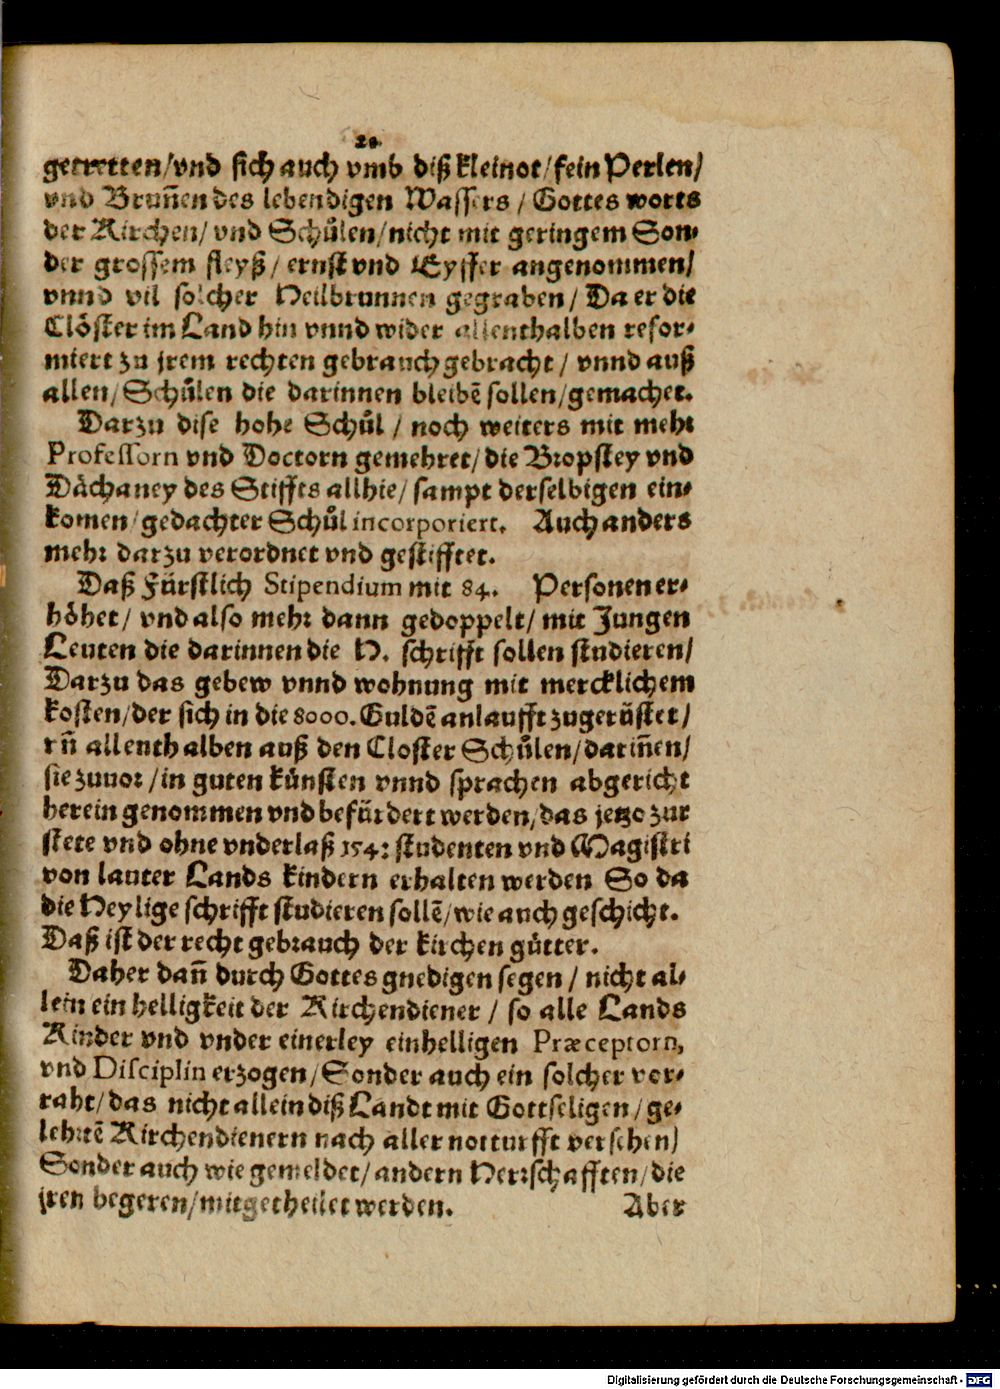 20.
getretten/vnd sich auch vmb diß kleinot/fein Perlen/
vnd Bruñen des lebendigen Wassers / Gottes worts
der Kirchen/ vnd Schůlen/nicht mit geringem Son⸗
der grossem fleyß/ ernst vnd Eyffer angenommen/
vnnd vil solcher Heilbrunnen gegraben/ Da er die
Clöster im Land hin vnnd wider allenthalben refor⸗
miert zu jrem rechten gebrauch gebracht / vnnd auß
allen/Schůlen die darinnen bleibẽ sollen/gemachet.
Darzu dise hohe Schůl / noch weiters mit mehr
Professorn vnd Doctorn gemehret/die Bropstey vnd
Dächaney des Stiffts allhie/ sampt derselbigen ein⸗
komen/gedachter Schůl incorporiert. Auch anders
mehr darzu verordnet vnd gestifftet.
Daß Fürstlich Stipendium mit 84. Personen er⸗
höhet/ vnd also mehr dann gedoppelt/ mit Jungen
Leuten die darinnen die H. schrifft sollen studieren/
Darzu das gebew vnnd wohnung mit mercklichem
kosten/der sich in die 8000. Guldẽ anlaufft zugerüstet/
vñ allenthalben auß den Closter Schůlen/dariñen/
sie zuuor/in guten künsten vnnd sprachen abgericht
herein genommen vnd befürdert werden/das jetzo zur
stete vnd ohne vnderlaß 154: studenten vnd Magistri
von lauter Lands kindern erhalten werden So da
die Heylige schrifft studieren sollẽ/wie auch geschicht.
Daß ist der recht gebrauch der kirchen gütter.
Daher dañ durch Gottes gnedigen segen / nicht al⸗
lein ein helligkeit der Kirchendiener / so alle Lands
Kinder vnd vnder einerley einhelligen Præceptorn,
vnd Disciplin erzogen/Sonder auch ein solcher vor⸗
raht/das nicht allein diß Landt mit Gottseligen/ge⸗
lehrtẽ Kirchendienern nach aller notturfft versehen/
Sonder auch wie gemeldet/andern Herrschafften/die
jren begeren/mitgetheilet werden. Aber
Digitalisierung gefördert durch die Deutsche Forschungsgemeinschaft - DFG